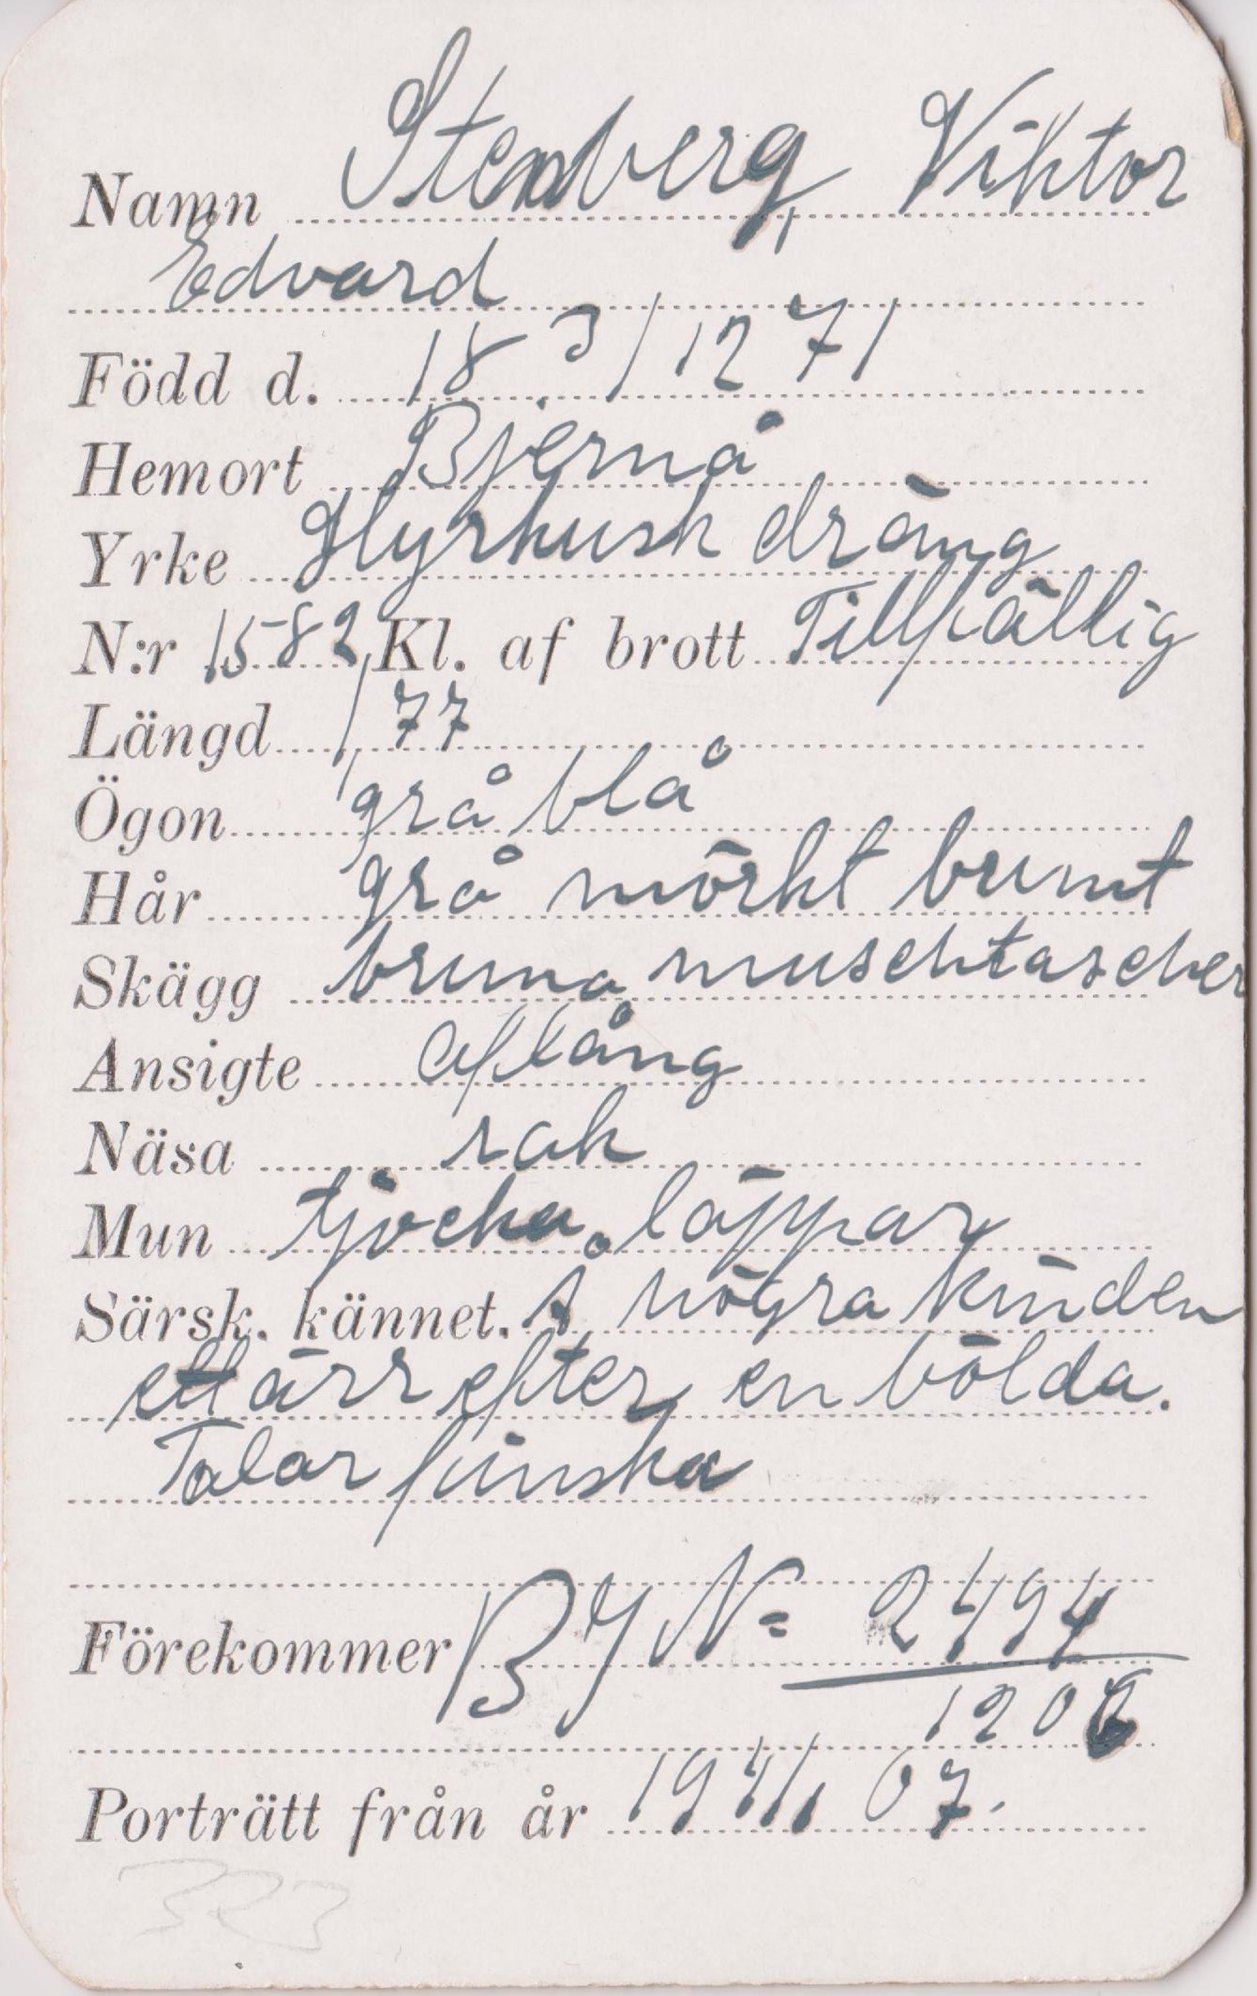 Namn Stenberg, Viktor
Edvard
Född d. 18 3/12 71
Hemort Bjernå
Yrke Hyrkusk dräng
N:r 1582, Kl. af brott Tillfällig
Längd 1,77
Ögon grå blå
Hår grå mörkt brunt
Skägg bruna muschtascher
Ansigte Aflång
Näsa rak
Mun tjocka läppar
Särsk. kännet. Å högra kinden
ett ärr efter en bölda.
Talar finska
Förekommer BJ No 2494
1206
Porträtt från år 19 4/1 07.
323